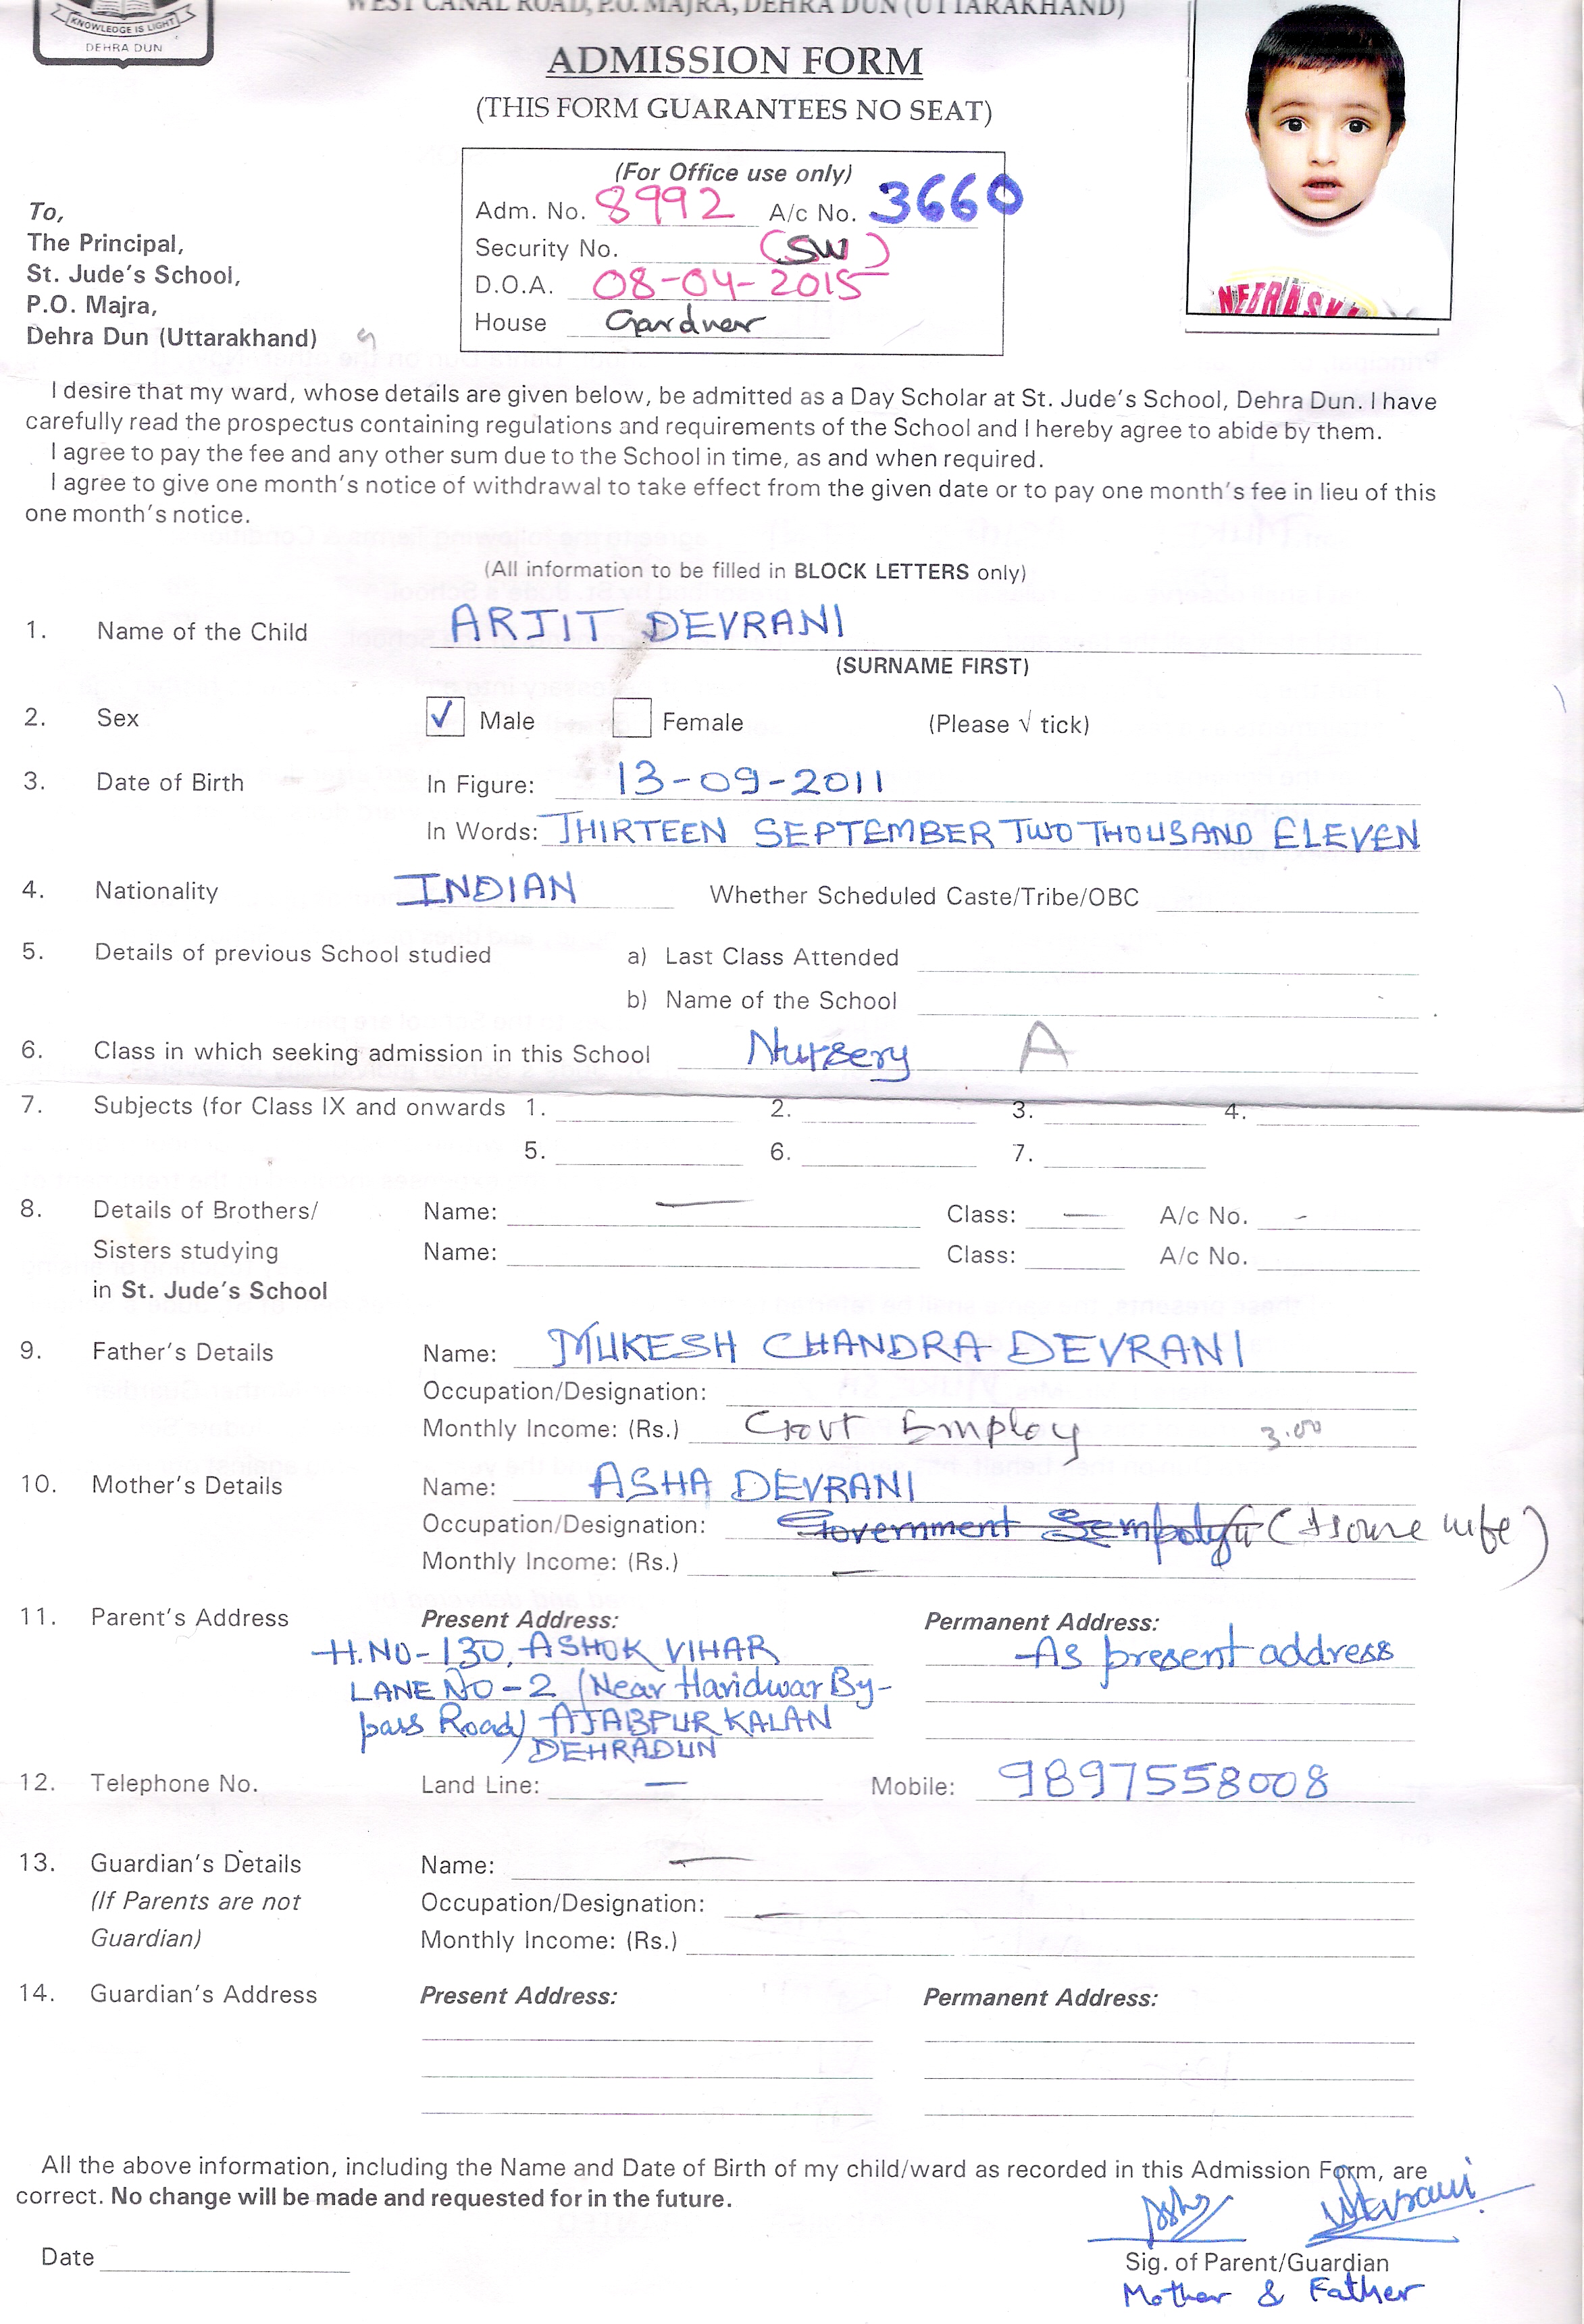 WEST CANAL ROAD, P.O. MAJRA, DEHRA DUN (UTTARAKHAND)
KNOWLEDGE IS LIGHT
DEHRA DUN
ADMISSION FORM
(THIS FORM GUARANTEES NO SEAT)
(For Office use only)
Adm. No. 8992 A/c No. 3660
Security No. (SW)
D.O.A. 08-04-2015
House Gardner
To,
The Principal,
St. Jude's School,
P.O. Majra,
Dehra Dun (Uttarakhand)
NEBRASK
I desire that my ward, whose details are given below, be admitted as a Day Scholar at St. Jude's School, Dehra Dun. I have
carefully read the prospectus containing regulations and requirements of the School and I hereby agree to abide by them.
I agree to pay the fee and any other sum due to the School in time, as and when required.
I agree to give one month's notice of withdrawal to take effect from the given date or to pay one month's fee in lieu of this
one month's notice.
(All information to be filled in BLOCK LETTERS only)
1. Name of the Child ARJIT DEVRANI
(SURNAME FIRST)
2. Sex ✓ Male Female (Please √ tick)
3. Date of Birth In Figure: 13-09-2011
In Words: THIRTEEN SEPTEMBER TWO THOUSAND ELEVEN
4. Nationality INDIAN Whether Scheduled Caste/Tribe/OBC
5. Details of previous School studied a) Last Class Attended
b) Name of the School
6. Class in which seeking admission in this School Nursery A
7. Subjects (for Class IX and onwards 1. 2. 3. 4.
5. 6. 7.
8. Details of Brothers/ Name: — Class: — A/c No. -
Sisters studying Name: Class: A/c No.
in St. Jude's School
9. Father's Details Name: MUKESH CHANDRA DEVRANI
Occupation/Designation:
Monthly Income: (Rs.) Govt Employ 3.00
10. Mother's Details Name: ASHA DEVRANI
Occupation/Designation: Government (House wife)
Monthly Income: (Rs.) —
11. Parent's Address Present Address: Permanent Address:
H.NO-130, ASHOK VIHAR As present address
LANE NO-2 (Near Haridwar By-
pass Road) AJABPUR KALAN
DEHRADUN
12. Telephone No. Land Line: — Mobile: 9897558008
13. Guardian's Details Name: —
(If Parents are not Occupation/Designation: —
Guardian) Monthly Income: (Rs.)
14. Guardian's Address Present Address: Permanent Address:
All the above information, including the Name and Date of Birth of my child/ward as recorded in this Admission Form, are
correct. No change will be made and requested for in the future.
Date
Sig. of Parent/Guardian
Mother & Father